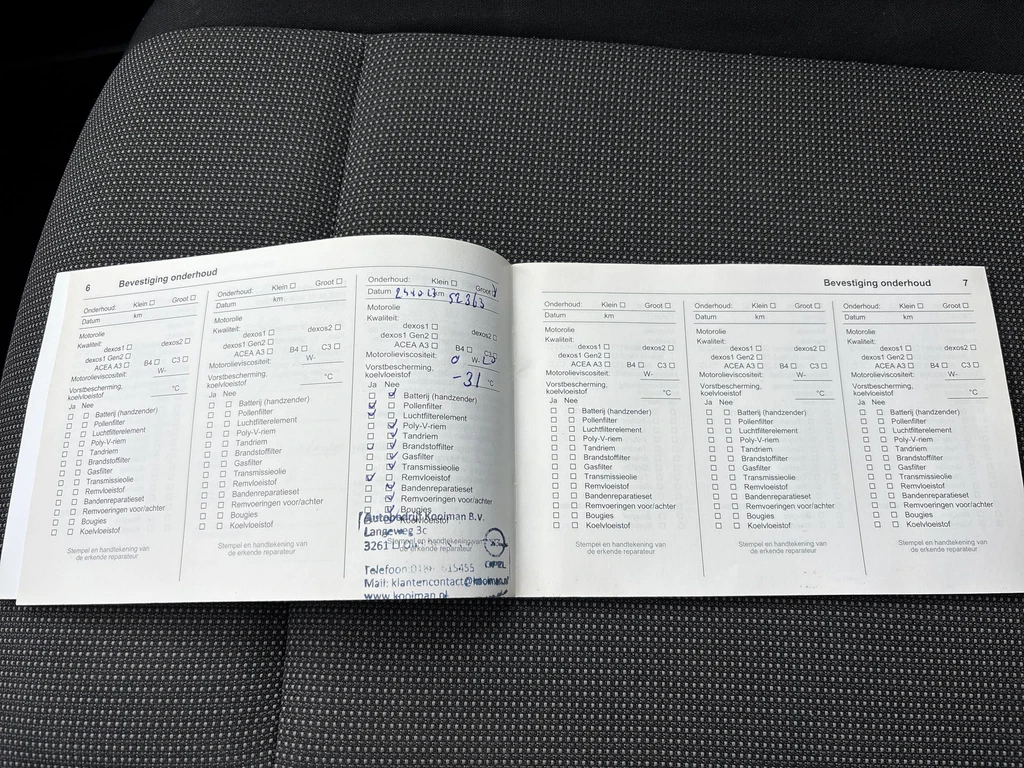 6 Bevestiging onderhoud
Onderhoud: Klein Groot
Datum km
Motorolie
Kwaliteit:
dexos1 dexos2
dexos1 Gen2
ACEA A3 B4 C3
Motorolieviscositeit: W-
Vorstbescherming, koelvloeistof °C
Ja Nee
Batterij (handzender)
Pollenfilter
Luchtfilterelement
Poly-V-riem
Tandriem
Brandstoffilter
Gasfilter
Transmissieolie
Remvloeistof
Bandenreparatieset
Remvoeringen voor/achter
Bougies
Koelvloeistof
Stempel en handtekening van
de erkende reparateur
Onderhoud: Klein Groot
Datum km
Motorolie
Kwaliteit:
dexos1 dexos2
dexos1 Gen2
ACEA A3 B4 C3
Motorolieviscositeit: W-
Vorstbescherming,
koelvloeistof °C
Ja Nee
Batterij (handzender)
Pollenfilter
Luchtfilterelement
Poly-V-riem
Tandriem
Brandstoffilter
Gasfilter
Transmissieolie
Remvloeistof
Bandenreparatieset
Remvoeringen voor/achter
Bougies
Koelvloeistof
Stempel en handtekening van
de erkende reparateur
Onderhoud: Klein Groot
Datum km 52363
Motorolie
Kwaliteit:
dexos1 dexos2
dexos1 Gen2
ACEA A3 B4
Motorolieviscositeit: 0 W-
Vorstbescherming,
koelvloeistof -31 °C
Ja Nee
Batterij (handzender)
Pollenfilter
Luchtfilterelement
Poly-V-riem
Tandriem
Brandstoffilter
Gasfilter
Transmissieolie
Remvloeistof
Bandenreparatieset
Remvoeringen voor/achter
Bougies
Autobedrijf Kooiman B.V.
Langeweg 3c
Stempel en handtekening van
3261
de erkende reparateur
OPEL
Telefoon:
Mail: klantencontact@kooiman.nl
www.kooiman.nl
Bevestiging onderhoud 7
Onderhoud: Klein Groot
Datum km
Motorolie
Kwaliteit:
dexos1 dexos2
dexos1 Gen2
ACEA A3 B4 C3
Motorolieviscositeit: W-
Vorstbescherming,
koelvloeistof °C
Ja Nee
Batterij (handzender)
Pollenfilter
Luchtfilterelement
Poly-V-riem
Tandriem
Brandstoffilter
Gasfilter
Transmissieolie
Remvloeistof
Bandenreparatieset
Remvoeringen voor/achter
Bougies
Koelvloeistof
Stempel en handtekening van
de erkende reparateur
Onderhoud: Klein Groot
Datum km
Motorolie
Kwaliteit:
dexos1 dexos2
dexos1 Gen2
ACEA A3 B4 C3
Motorolieviscositeit: W-
Vorstbescherming,
koelvloeistof °C
Ja Nee
Batterij (handzender)
Pollenfilter
Luchtfilterelement
Poly-V-riem
Tandriem
Brandstoffilter
Gasfilter
Transmissieolie
Remvloeistof
Bandenreparatieset
Remvoeringen voor/achter
Bougies
Koelvloeistof
Stempel en handtekening van
de erkende reparateur
Onderhoud: Klein Groot
Datum km
Motorolie
Kwaliteit:
dexos1 dexos2
dexos1 Gen2
ACEA A3 B4 C3
Motorolieviscositeit: W-
Vorstbescherming,
koelvloeistof °C
Ja Nee
Batterij (handzender)
Pollenfilter
Luchtfilterelement
Poly-V-riem
Tandriem
Brandstoffilter
Gasfilter
Transmissieolie
Remvloeistof
Bandenreparatieset
Remvoeringen voor/achter
Bougies
Koelvloeistof
Stempel en handtekening van
de erkende reparateur